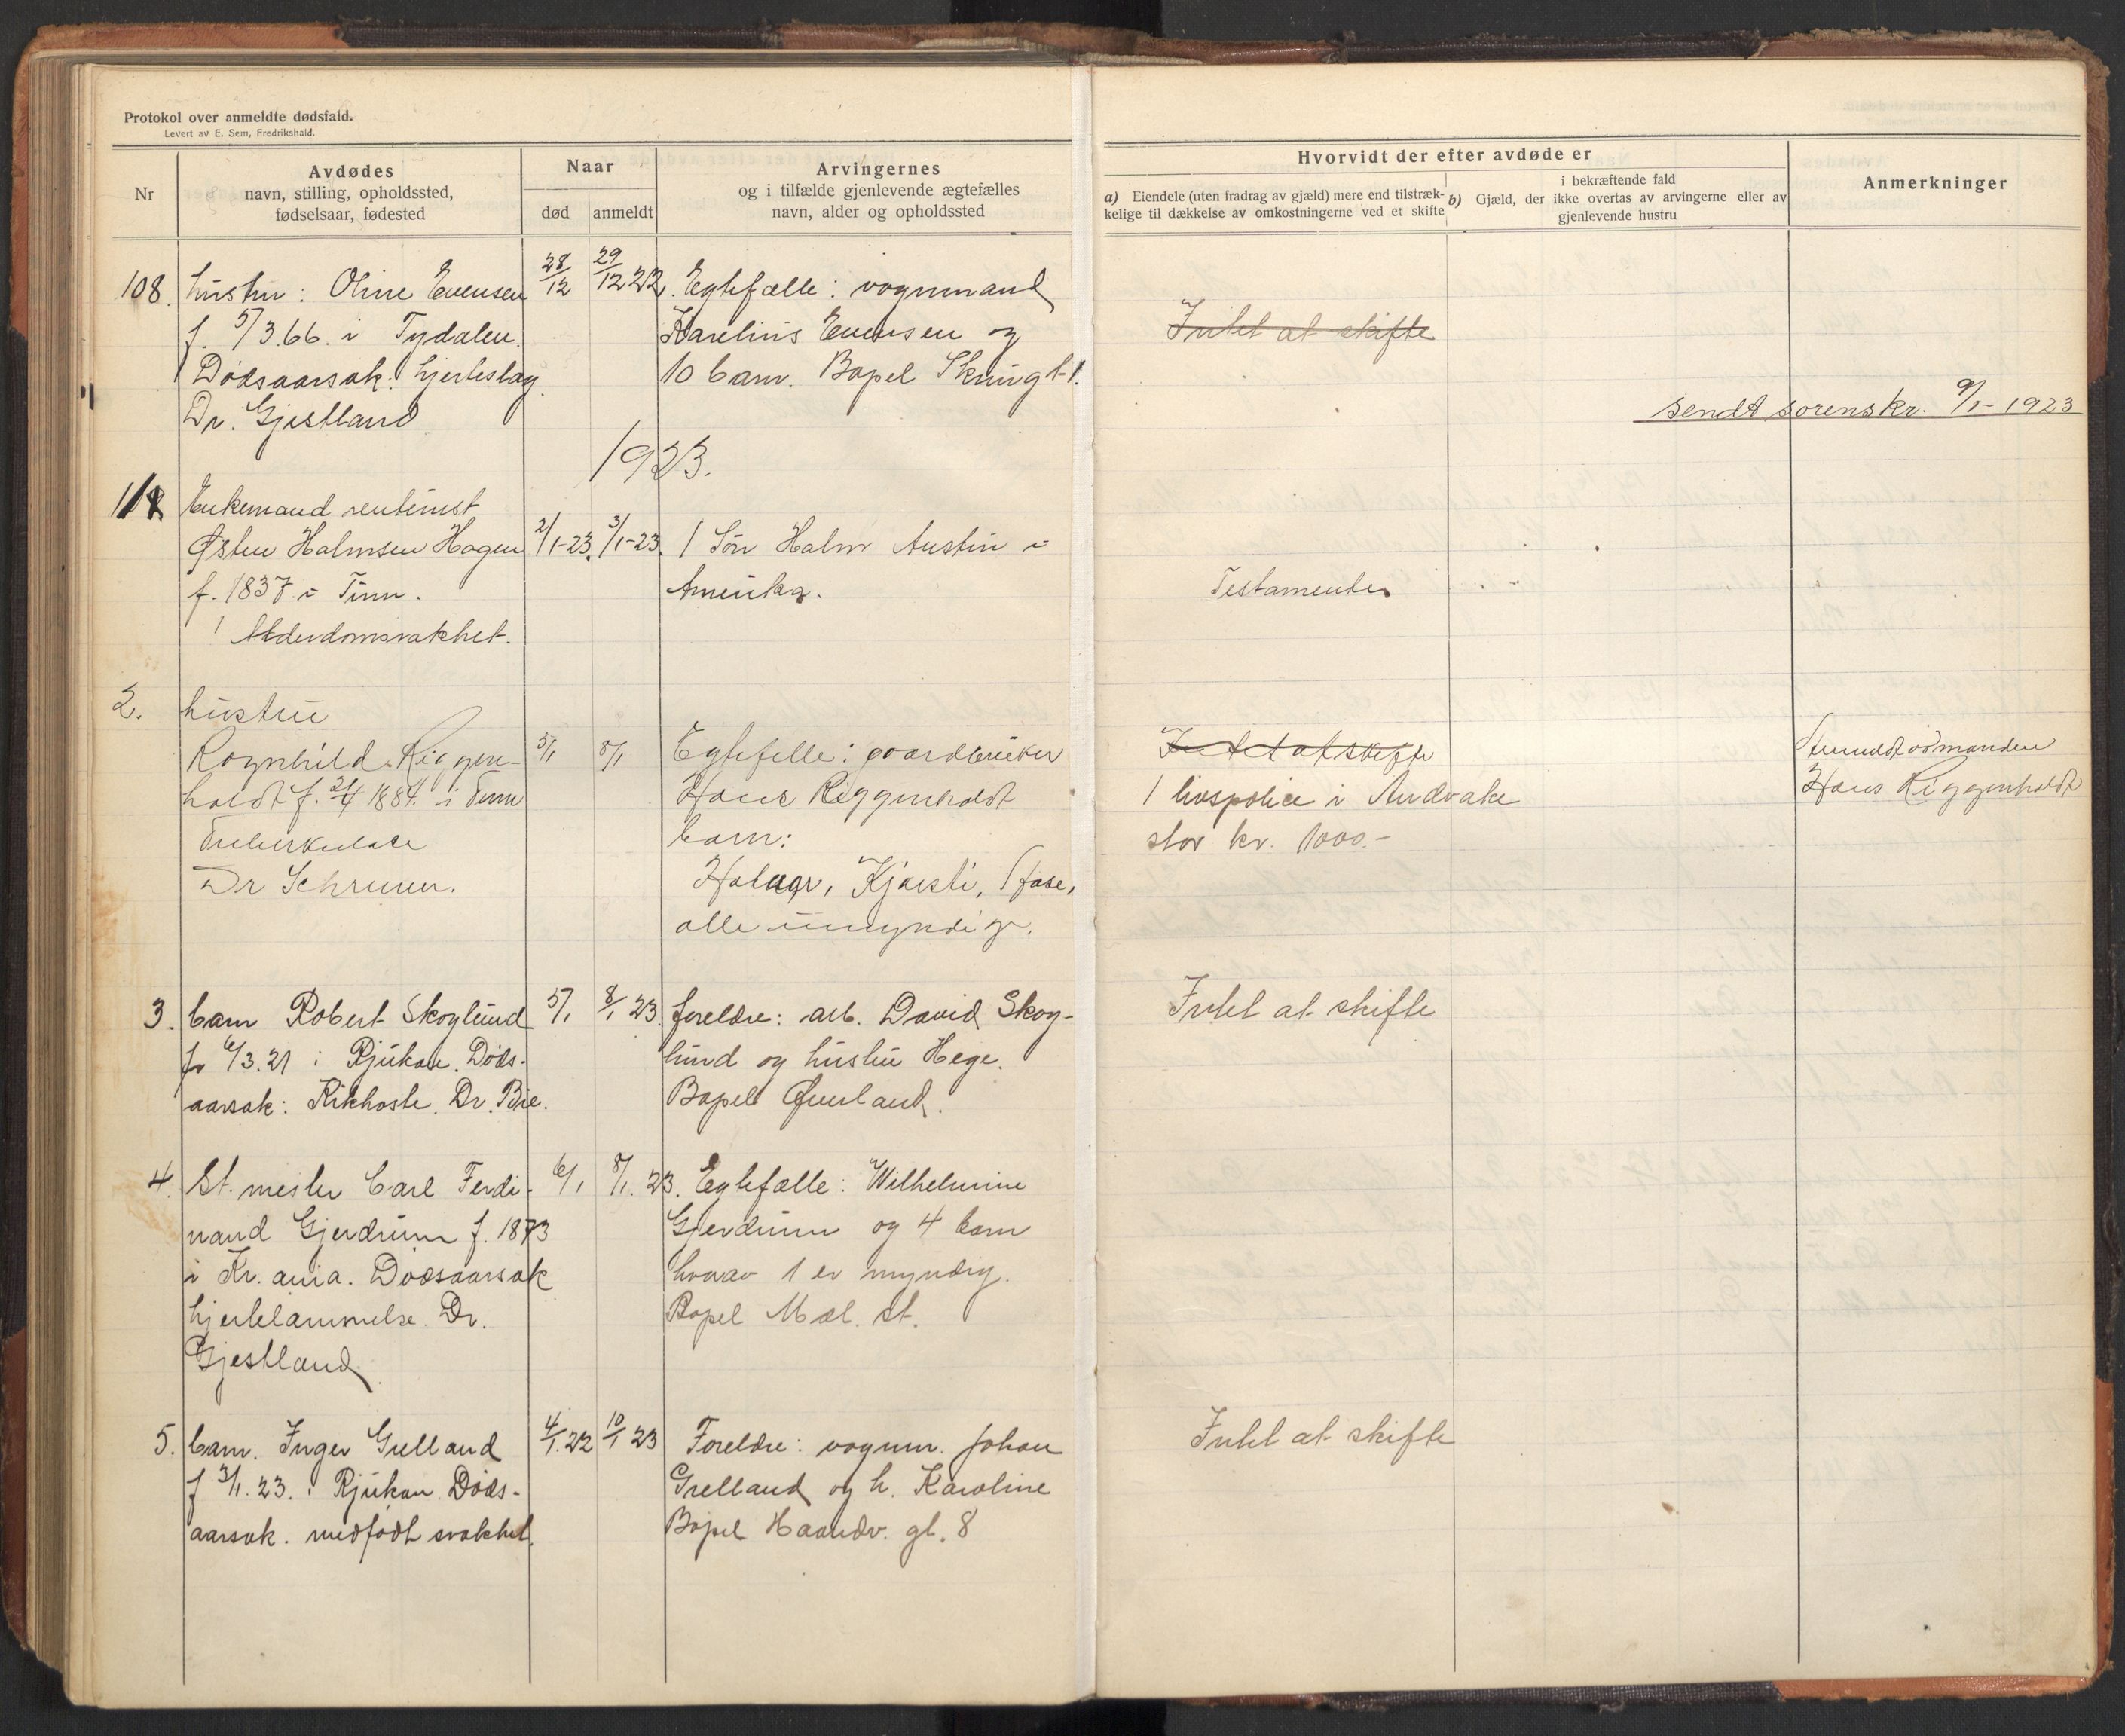 Protokol over anmeldte dødsfald.
Levert av E. Sem, Fredrikshald.
Nr
Avdødes
navn, stilling, opholdssted,
fødselsaar, fødested
Naar
død
anmeldt
Arvingernes
og i tilfælde gjenlevende ægtefælles
navn, alder og opholdssted
Hvorvidt der efter avdøde er
a) Eiendele (uten fradrag av gjæld) mere end tilstræk-
kelige til dækkelse av omkostningerne ved et skifte
i bekræftende fald
b) Gjæld, der ikke overtas av arvingerne eller av
gjenlevende hustru
Anmerkninger
108. hustru: Oline Evensen
f. 5/3.66. i Tydalen.
Dødsaarsak: hjerteslag.
Dr. Gjestland
28/12
29/12 22.
Egtefælle: vognmand
Karelius Evensen og
10 barn. Bopel Skriugt 1.
Intet at skifte
sendt sorenskr. 9/1-1923
1923.
1
Enkemand rentenist
Østen Halmsen Hagen
f. 1837 i Tinn.
Alderdomsvakhet.
2/1-23.
3/1-23.
1 Søn Halm Austin i
Amerika.
Testamente
2. hustru
Ragnhild Riggen-
holdt f. 21/4 1884. i Tinn
Tuberkulose
Dr Schrumm.
5/1
8/1
Egtefelle: gaardbruker
Hans Riggenholdt
barn:
Halvor, Kjersti, Aase,
alle umyndige.
Intet at skifte
1 livspolice i Andvake
stor kr. 1000.-
Hans Riggenholdt
3. barn Robert Skoglund
f. 6/3.21 i Rjukan. Døds-
aarsak: Kikhoste. Dr. Bie.
5/1
8/1 23.
foreldre: arb. David Skog-
lund og hustru Hege.
Bopel Øverland.
Intet at skifte
4. St. mester Carl Ferdi-
nand Gjerdrum f. 1873
i Kr.ania. Dødsaarsak
hjertelammelse. Dr.
Gjestland
6/1
8/1. 23.
Egtefælle: Wilhelmine
Gjerdrum og 4 barn
hvorav 1 er myndig.
Bopel Mæl. st.
5. barn. Inger Grelland
f 3/1. 23. i Rjukan. Døds-
aarsak. medfødt svakhet.
4/1. 22
10/1 23
Foreldre: vognm. Johan
Grelland og h. Karoline
Bopel Haandv. gt. 8
Intet at skifte